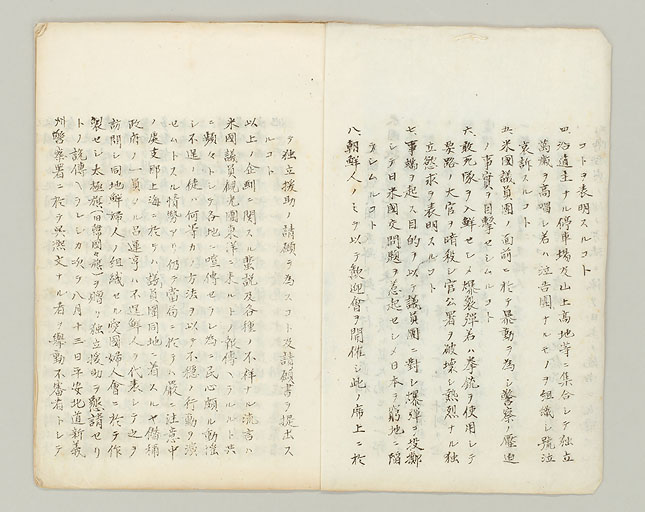 コトヲ表明スルコト
四、沿道主ナル停車場及山上高地等ニ集合シテ独立
萬歳ヲ高唱シ若ハ泣告團ナルモノヲ組織シ號泣
哀訴スルコト
五、米國議員團ノ面前ニ於テ暴動ヲ為シ警察ノ壓迫
ノ事實ヲ目撃セシムルコト
六、敢死隊ヲ入鮮セシメ爆裂弾若ハ拳銃ヲ使用シテ
要路ノ大官ヲ暗殺シ官公署ヲ破壊シ熱烈ナル独
立欲求ヲ表明スルコト
七、事端ヲ起ス目的ヲ以テ議員團ニ對シ爆弾ヲ投擲
シテ日米國交問題ヲ惹起セシメ日本ヲ窮地ニ陥
ラシムルコト
八、朝鮮人ノミヲ以テ歓迎會ヲ開催シ此ノ席上ニ於
テ独立援助ノ請願ヲ為スコト及請願書ヲ提出ス
ルコト
以上ノ企劃ニ関スル蜚説及各種ノ不祥ナル流言ハ
米國議員観光團東洋ニ来ルトノ報傳ヘラルルト共
ニ頻々トシテ各地ニ喧傳セラレ為ニ民心頗ル動揺
シ不逞ノ徒ハ何等カノ方法ヲ以テ不穏ノ行動ヲ演
セムトスル情勢アリ仍テ當局ニ於テハ厳ニ注意中
ノ處支那上海ニ於テハ議員團同地ニ着スルヤ僭稱
政府ノ一員タル呂運亨ハ不逞鮮人ヲ代表シテ之ヲ
訪問シ同地鮮婦人ノ組織セル愛國婦人會ニ於テ作
製セシ太極旗(旧韓國々旗)ヲ贈リ独立援助ヲ懇請セリ
トノ説傳ヘラレシカ次テ八月十三日平安北道新義
州警察署ニ於テ呉洪文ナル者ヲ擧動不審者トシテ